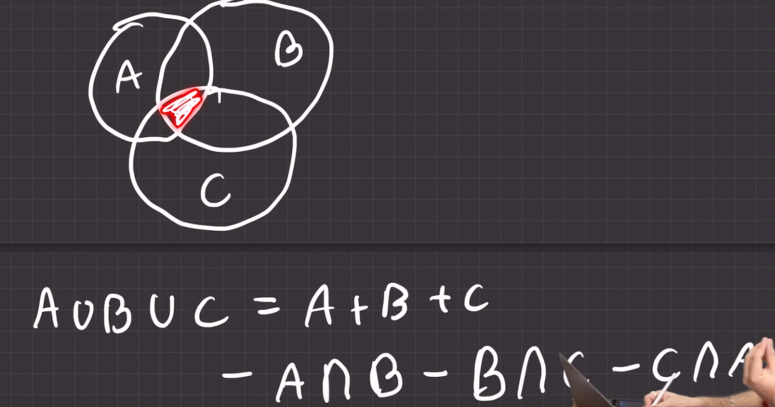 A
B
C
A∪B∪C = A+B+C
- A∩B - B∩C - C∩A